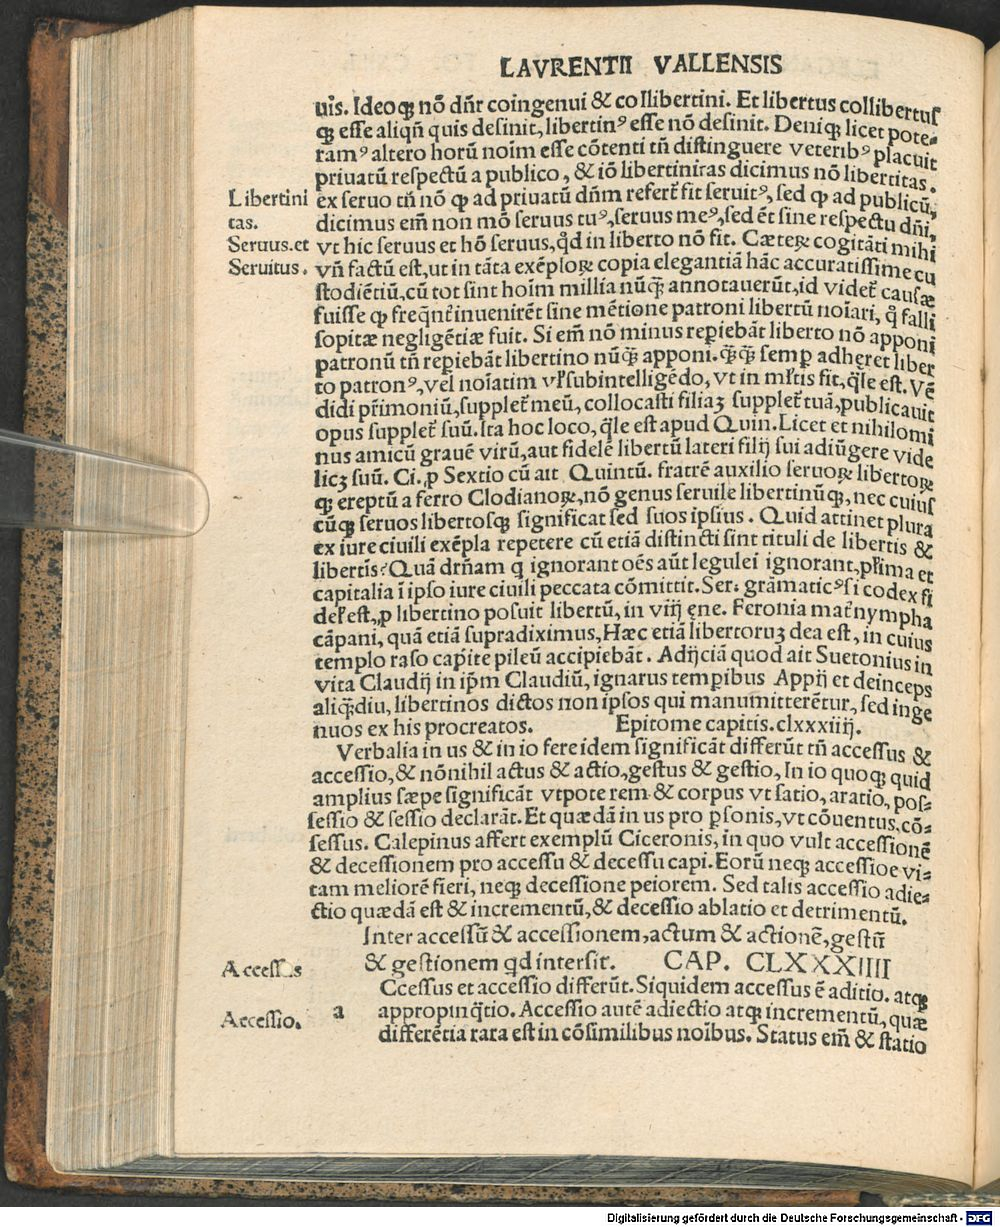 LAVRENTII VALLENSIS
uis. Ideoqꝫ nõ dñr coingenui & collibertini. Et libertus collibertus
qꝫ esse aliqñ quis desinit, libertinꝰ esse nõ desinit. Deniqꝫ licet pote⸗
ramꝰ altero horũ noim esse cõtenti tñ distinguere veteribꝰ placuit
priuatũ respectũ a publico, & iõ libertinitas dicimus nõ libertitas.
Libertini
tas.
Seruus.et
Seruitus.
ex seruo tñ nõ ꝙ ad priuatũ dñm refert̃ fit seruitꝰ, sed ꝙ ad publicũ,
dicimus em̃ non mõ seruus tuꝰ, seruus meꝰ, sed ẽt sine respectu dñi,
vt hic seruus et hõ seruus, qd̃ in liberto nõ fit. Cæteꝝ cogitãti mihi
vñ factũ est, ut in tãta exẽploꝝ copia elegantiã hãc accuratissime cu
stodiẽtiũ, cũ tot sint hoim millia nũq̃ annotauerũt, id videt̃ causæ
fuisse ꝙ freq̃nt̃ inuenirẽt sine mẽtione patroni libertũ noĩari, q̃ falli
sopitæ negligẽtiæ fuit. Si em̃ nõ minus repiebãt liberto nõ apponi
patronũ tñ repiebãt libertino nũq̃ apponi. q̃q̃ semp adhęret liber
to patronꝰ, vel noĩatim vl̃ subintelligẽdo, vt in ml̃tis fit, q̃le est. Vẽ
didi pr̃imoniũ, supplet̃ meũ, collocasti filiaʒ supplet̃ tuã, publicauit
opus supplet̃ suũ. Ita hoc loco, q̃le est apud Quin. Licet et nihilomi
nus amicũ grauẽ virũ, aut fidelẽ libertũ lateri filij sui adiũgere vide
licʒ suũ. Ci. ꝓ Sextio cũ ait Quintũ. fratrẽ auxilio seruoꝝ libertoꝝ
qꝫ ereptũ a ferro Clodianoꝝ, nõ genus seruile libertinũqꝫ, nec cuius
cũqꝫ seruos libertosqꝫ significat sed suos ipsius. Quid attinet plura
ex iure ciuili exẽpla repetere cũ etiã distincti sint tituli de libertis &
libertis? Quã dr̃nam q ignorant oẽs aũt legulei ignorant, pr̃ima et
capitalia ĩ ipso iure ciuili peccata cõmittit. Ser: grãmaticꝰ si codex fi
del̃ est, ꝓ libertino posuit libertũ, in viij ęne. Feronia mat̃ nympha
cãpani, quã etiã supradiximus, Hæc etiã libertoruʒ dea est, in cuius
templo raso capite pileũ accipiebãt. Adijciã quod ait Suetonius in
vita Claudij in ip̃m Claudiũ, ignarus tempibus Appij et deinceps
aliq̃diu, libertinos dictos non ipsos qui manumitterẽtur, sed inge
nuos ex his procreatos. Epitome capitis. clxxxiiij.
Verbalia in us & in io fere idem significãt differũt tñ accessus &
accessio, & nõnihil actus & actio, gestus & gestio, In io quoqꝫ quid
amplius sæpe significãt vtpote rem & corpus vt satio, aratio, pos⸗
sessio & sessio declarãt. Et quædã in us pro psonis, vt cõuentus, cõ⸗
sessus. Calepinus affert exemplũ Ciceronis, in quo vult accessionẽ
& decessionem pro accessu & decessu capi. Eorũ neqꝫ accessiõe vi⸗
tam meliorẽ fieri, neqꝫ decessione peiorem. Sed talis accessio adie⸗
ctio quædã est & incrementũ, & decessio ablatio et detrimentũ.
Inter accessũ & accessionem, actum & actionẽ, gestũ
& gestionem qd intersit. CAP. CLXXXIIII
Accessus
a
Ccessus et accessio differũt. Siquidem accessus ẽ aditio. atqꝫ
Accessio.
appropinq̃tio. Accessio autẽ adiectio atqꝫ incrementũ, quæ
differẽtia rara est in cõsimilibus noĩbus. Status em̃ & statio
Digitalisierung gefördert durch die Deutsche Forschungsgemeinschaft - DFG